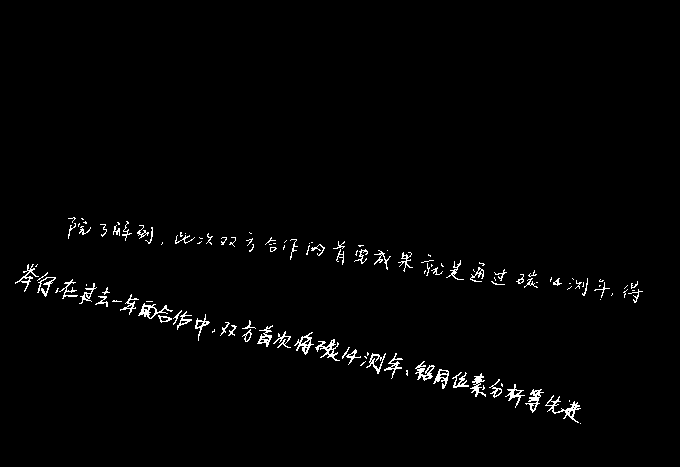 院了解到，此次双方合作的首要成果就是通过碳14测年，得
举行。在过去一年的合作中，双方首次将碳14测年、铅同位素分析等先进